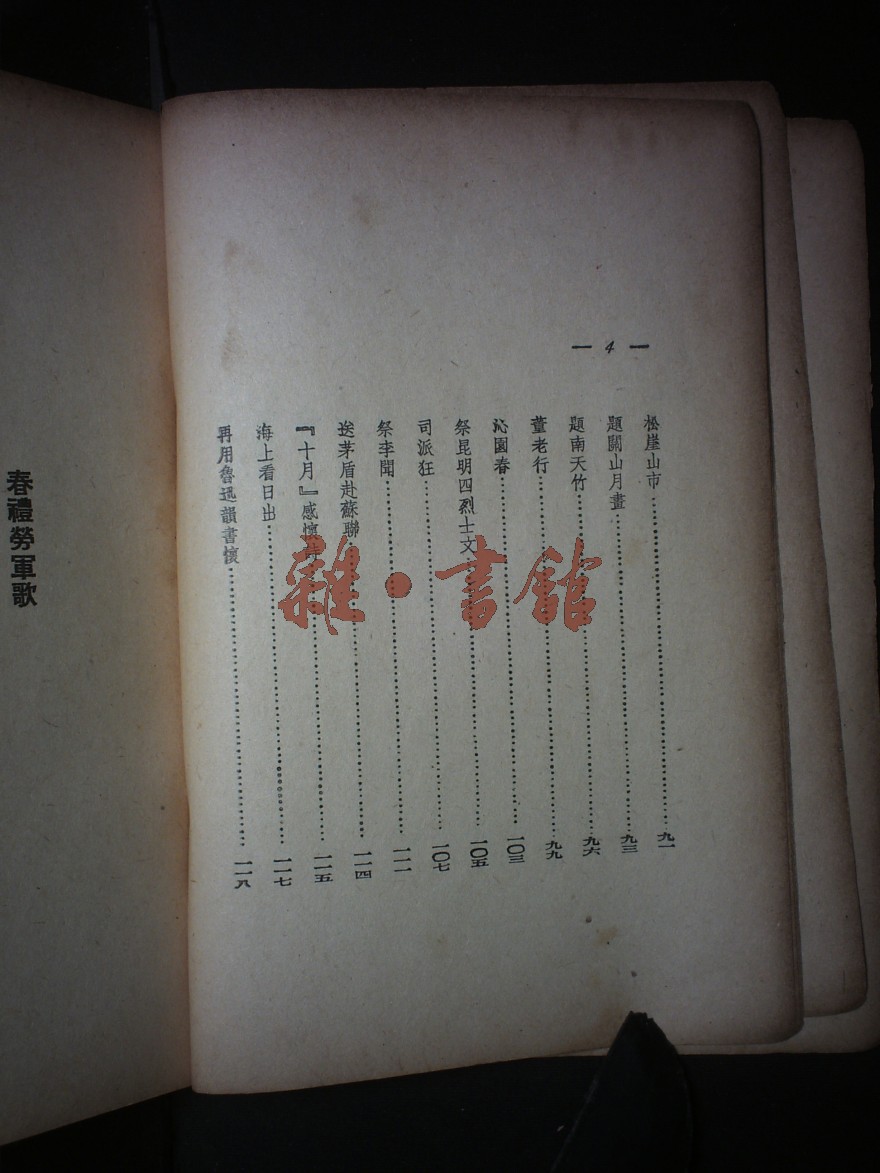 — 4 —
松崖山市……九一
題關山月畫……九三
題南天竹……九六
董老行……九九
沁園春……一〇三
祭昆明四烈士文……一〇五
司派狂……一〇七
祭李聞……一一一
送茅盾赴蘇聯……一一四
『十月』感懷……一一五
海上看日出……一一七
再用魯迅韻書懷……一一八
春禮勞軍歌
雜·書館